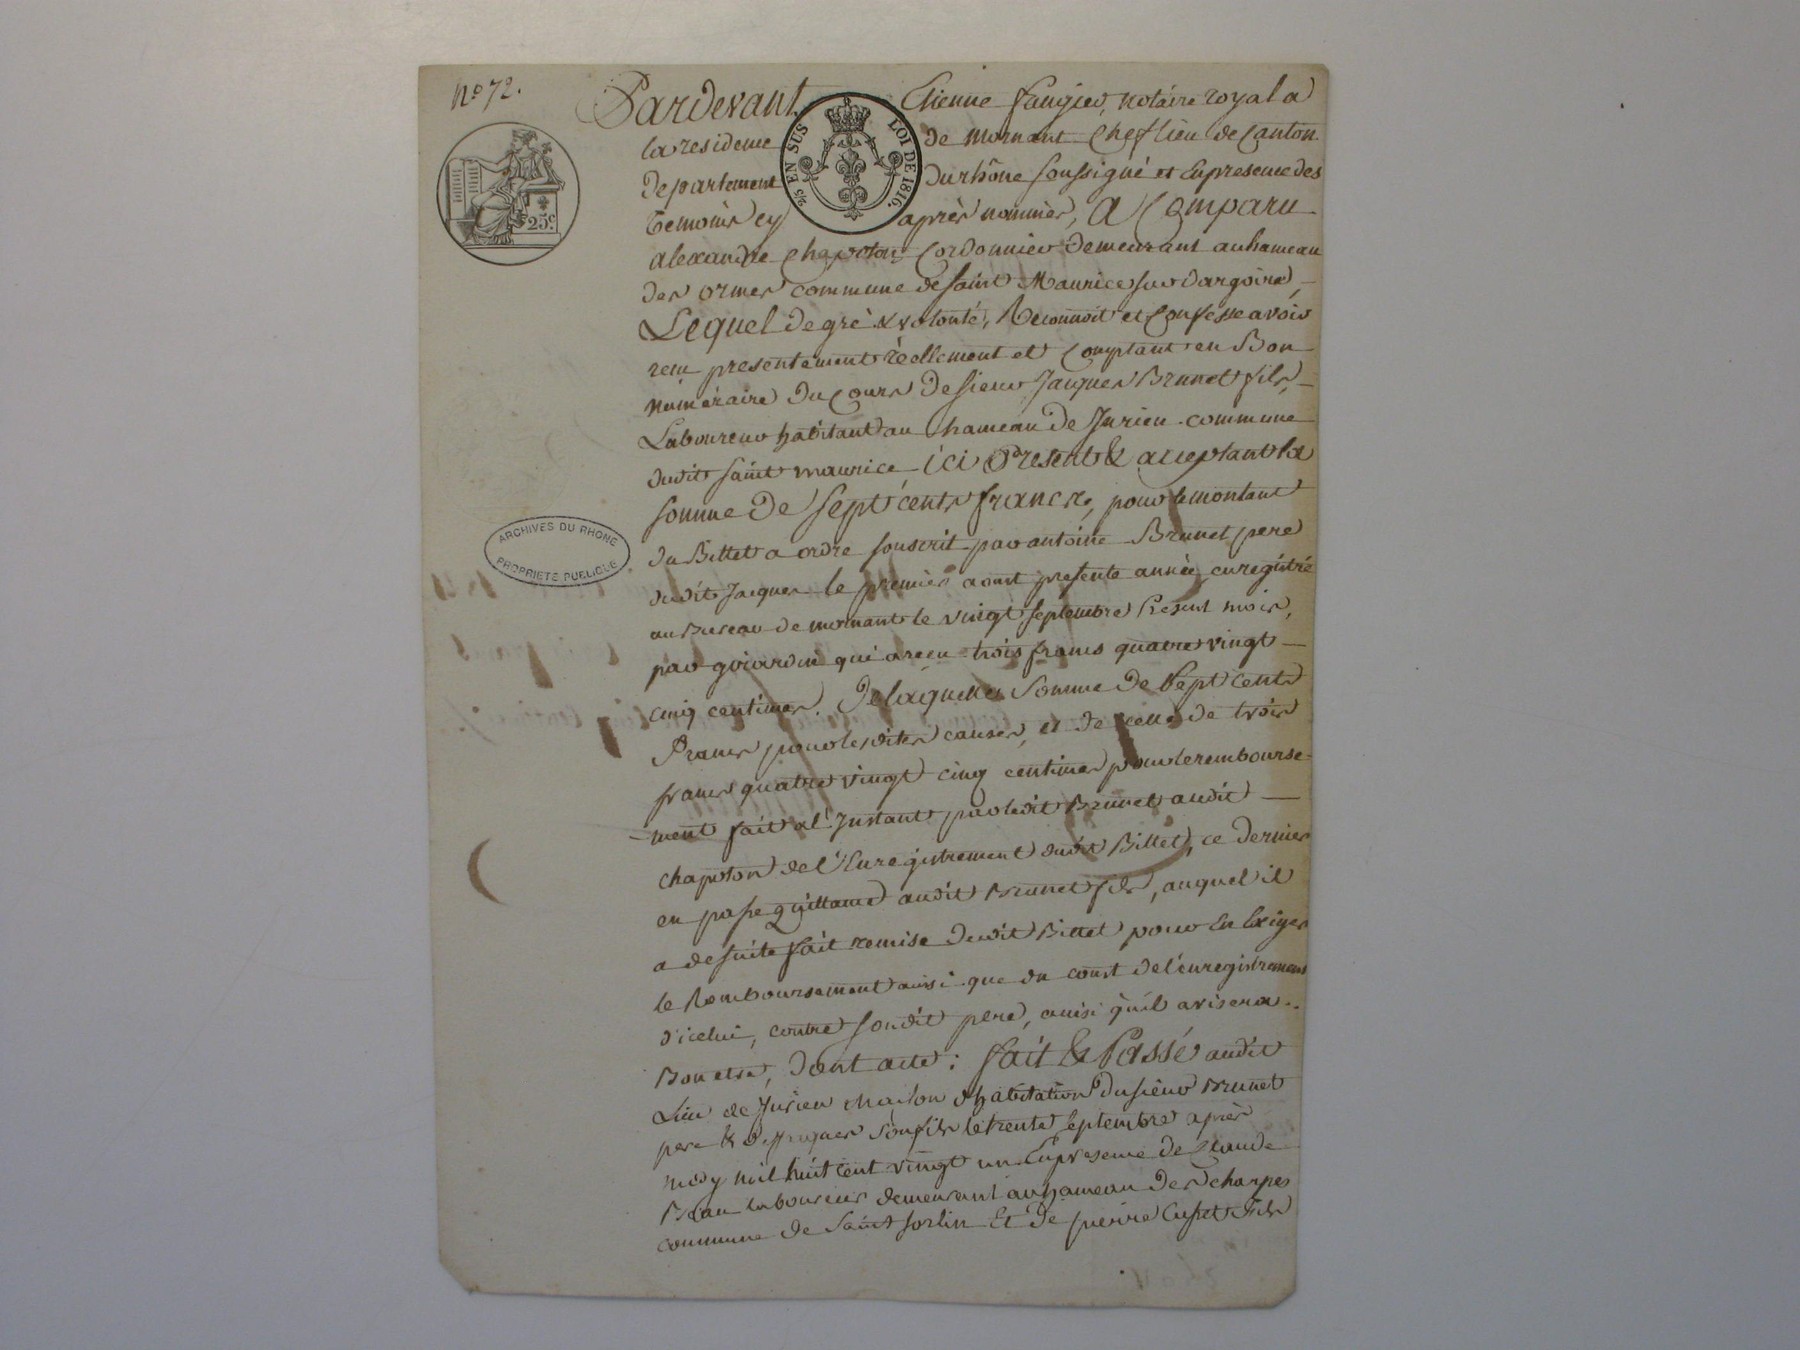 N.º 72.
Pardevant Etienne faugier, notaire royal a
la residence de mornant Chef lieu de Canton
departement du rhône soussigné et En presence des
temoins cy après nommés, a Comparu
alexandre chapoton Cordonnier demeurant au hameau
des ormes commune de saint Maurice sur dargoire,
Lequel de gré & volonté, Reconnoit et Confesse avoir
recu presentement réellement et Comptant en Bon
numéraire du Cours de sieur Jacques Brunet fils,
Laboureur habitant au hameau de Jurieu commune
dudit saint maurice ici Présent & acceptant la
somme de sept cents francs, pour le montant
du Billet a ordre souscrit par antoine Brunet pere
dudit Jacques le premier aoust presente année, enregistré
au Bureau de mornant le vingt septembre Present mois,
par girardin qui a recu trois francs quatre vingt
cinq centimes. De laquelle somme de sept cents
francs pour lesdites causes, et de celle de trois
francs quatre vingt cinq centimes pour le rembourse-
ment fait a l'Instant par ledit Brunet audit
chapoton de l'Enregistrement dudit Billet, ce dernier
en passe Quittance audit Brunet fils, auquel il
a de suite fait remise dudit Billet pour En Exiger
le Remboursement ainsi que du coust de l'enregistrement
d'icelui, contre sondit pere, ainsi qu'il avisera.
Bon etre, dont acte: fait & Passé audit
Lieu de Jurieu maison d'habitation du sieur Brunet
pere & de Jacques son fils le trente septembre après
midy mil huit cent vingt un En presence de Claude
laboureur demeurant au hameau des charpes
commune de saint sorlin Et de pierre Cusset fils
2/5 EN SUS
LOI DE 1816.
25c.
ARCHIVES DU RHONE
PROPRIETE PUBLIQUE